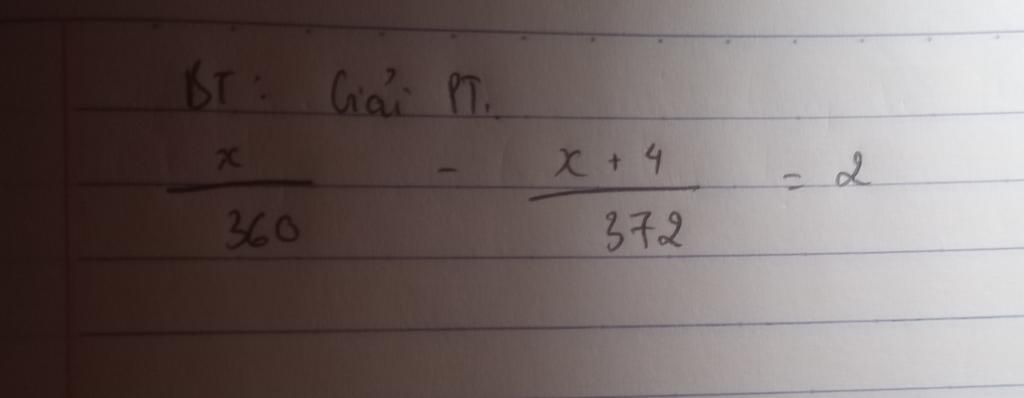 BT: Giải PT.
x/360 - x + 4/372 = 2